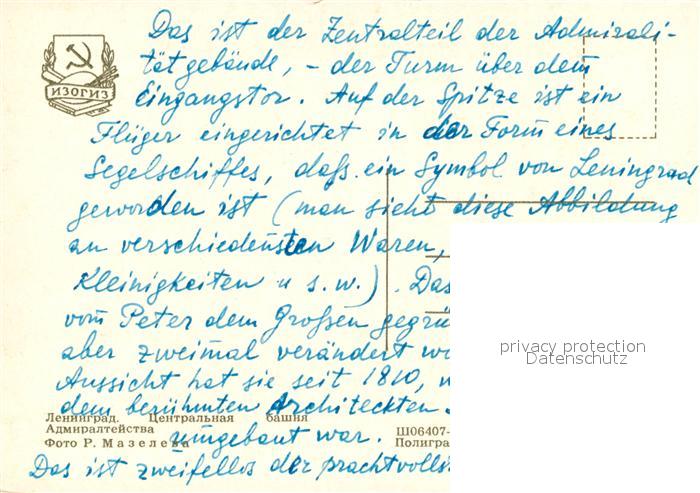 Das ist der Zentralteil der Admirali-
tätgebäude, - der Turm über dem
Eingangstor. Auf der Spitze ist ein
Flüger eingerichtet in der Form eines
Segelschiffes, daß ein Symbol von Leningrad
geworden ist (man sieht diese Abbildung
an verschiedensten Waren,
Kleinigkeiten u s. w.). Das
vom Peter dem Großen gegrü
aber zweimal verändert wo
Aussicht hat sie seit 1810,
dem berühmten Architeckten
umgebaut war.
Das ist zweifellos der prachtvolls
ИЗОГИЗ
Ленинград. Центральная башня
Адмиралтейства
Фото Р. Мазелева
Ш06407-
Полигра
privacy protection
Datenschutz